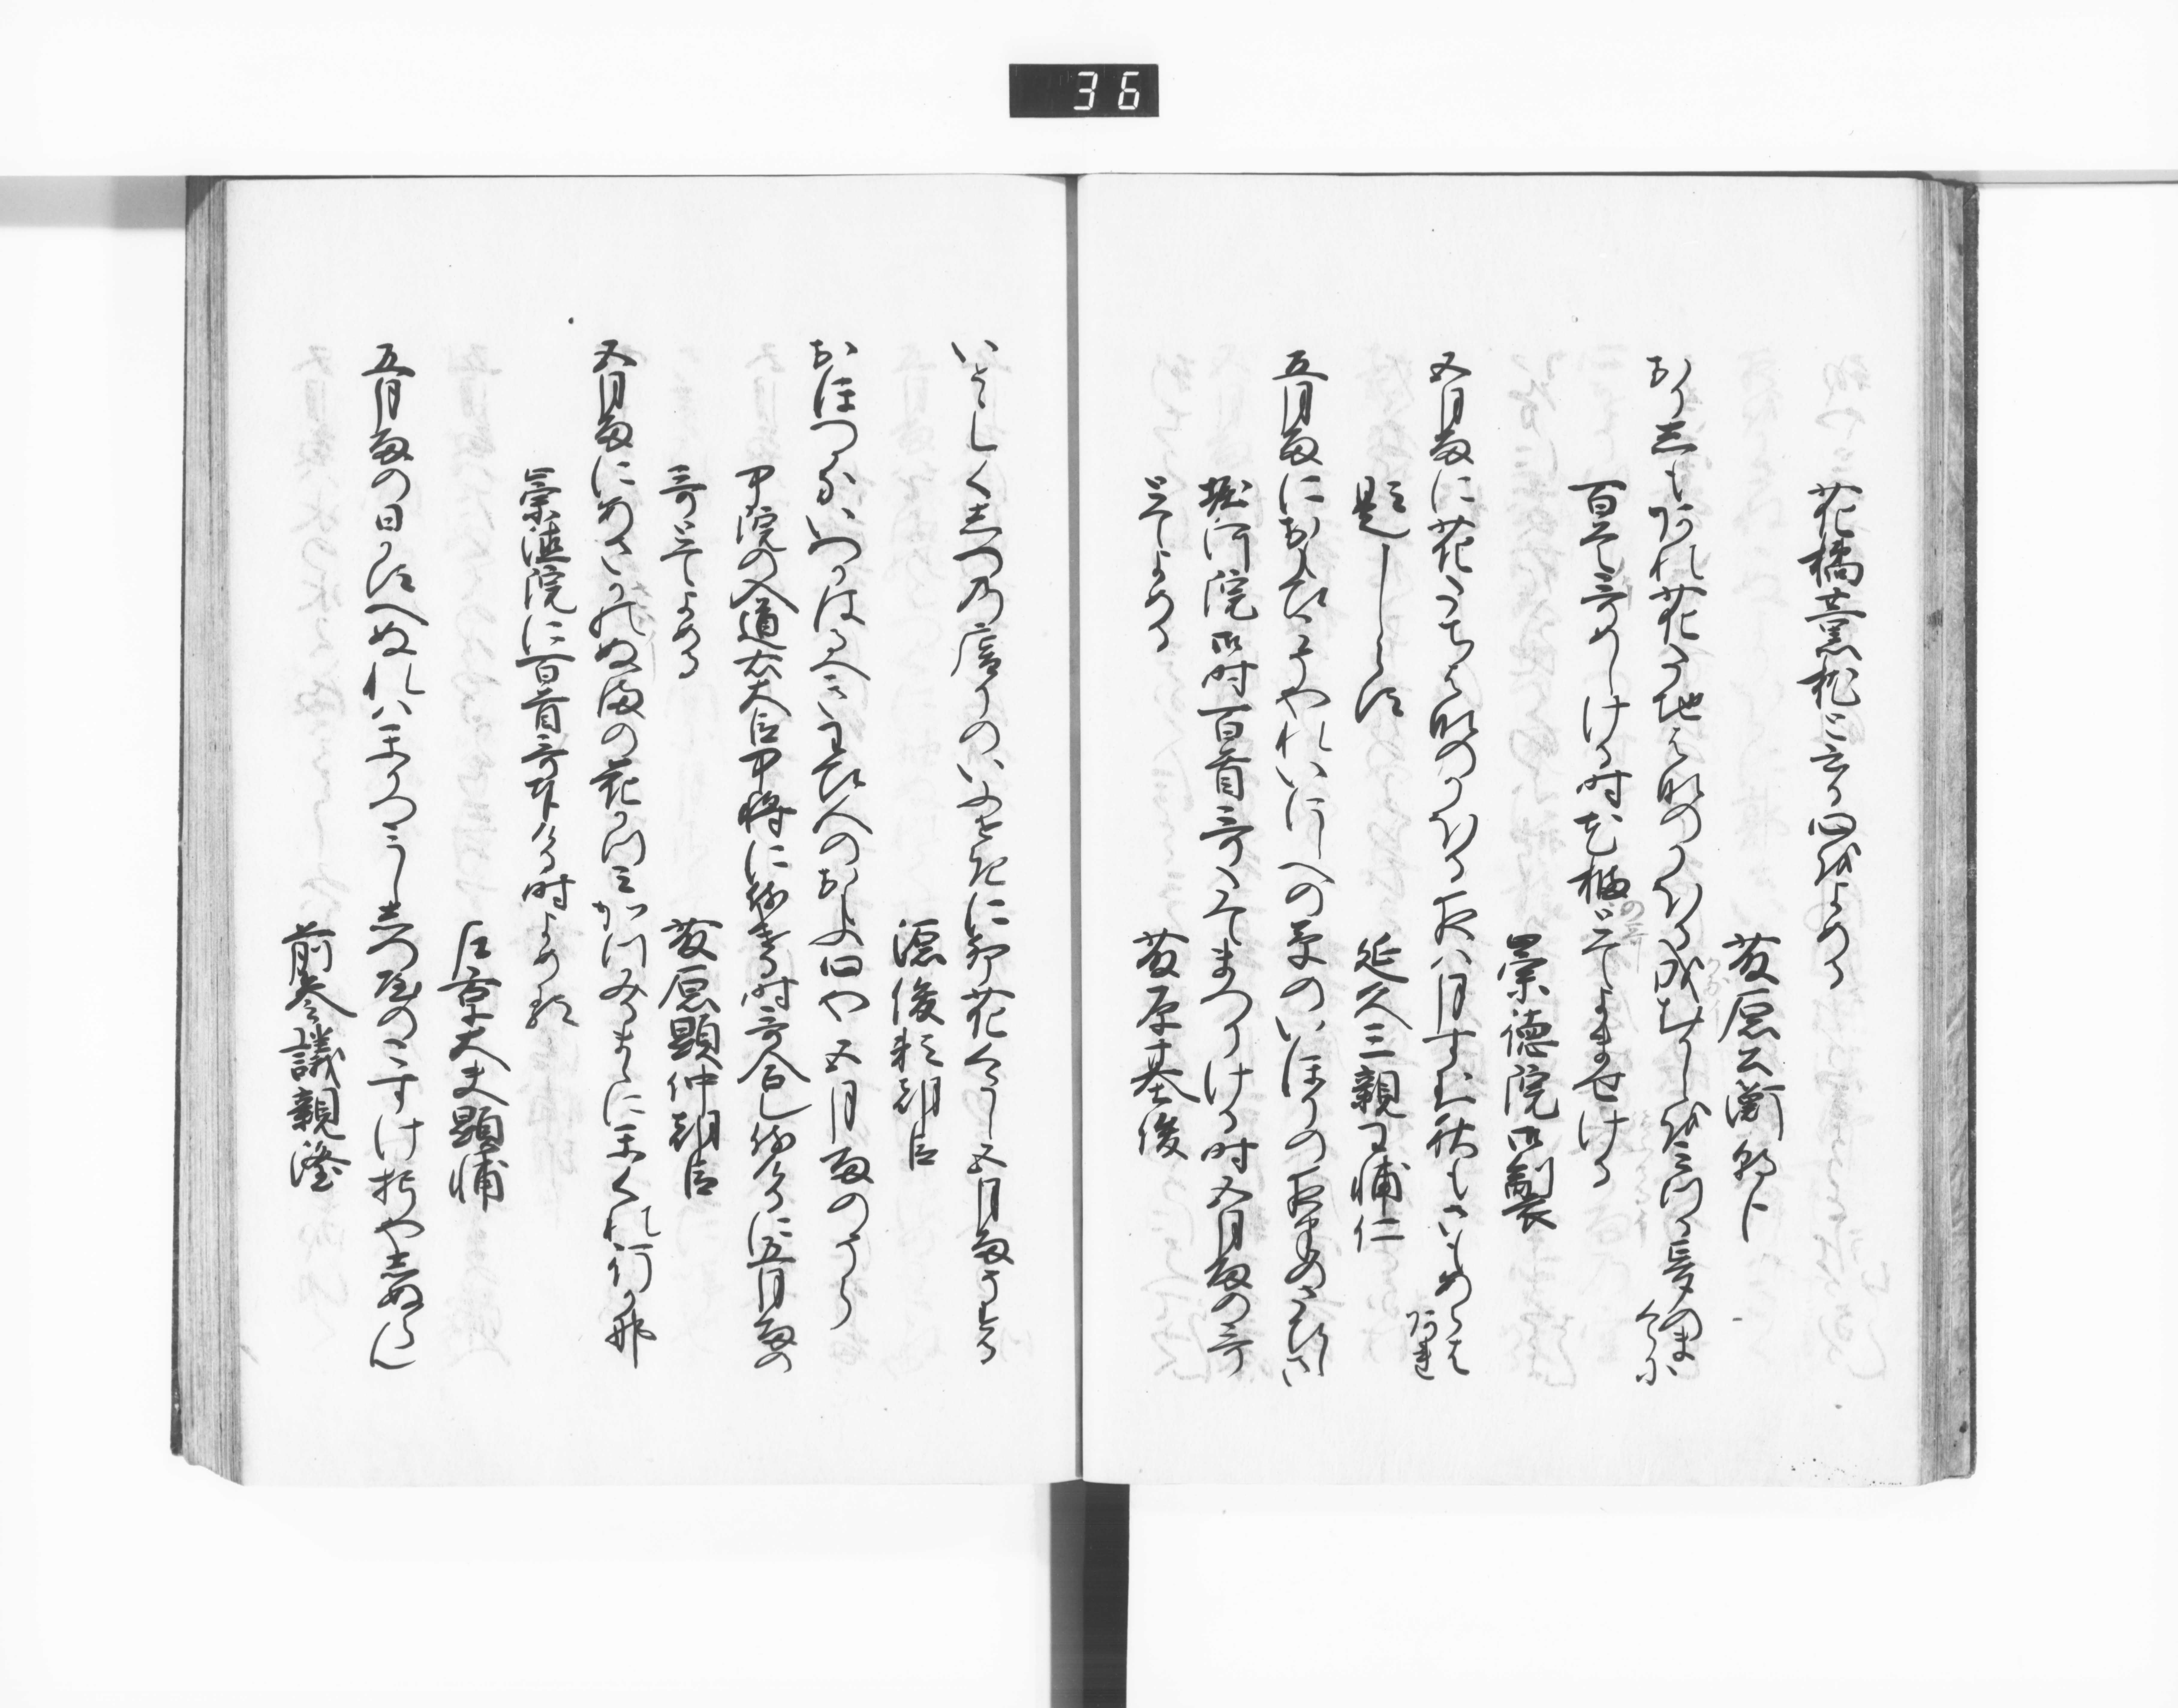 36
花橘薫枕と云る心をよめる
藤原公衡朝臣
おりしもあれ花たち花のかほる哉むかしをみつる夢のまくらに
百首哥めしける時花橘とてよませける
の哥
崇徳院御製
五月雨に花たちはなのかほる夜は月すむ秋もさもあらはあれ
題しらす
延久三親王輔仁
五月雨におもひこそやれいにしへの草のいほりの夜半のさひしさ
堀河院御時百首哥たてまつりける時五月雨の哥
とてよめる
藤原基俊
いとゝしくしつの庵りのいふせきに卯花くたし五月雨そふる
源俊頼朝臣
おほつかないつかはるへきわひ人のおもふ心や五月雨のそら
中院の入道右大臣中将に侍ける時哥合し侍けるに五月雨の
哥とてよめる
藤原顕仲朝臣
五月雨にあさゝはぬまの花かつみかつみるまゝにかくれ行かな
崇徳院に百首哥奉ける時よめる
左京大夫顕輔
五月雨の日かすへぬれはかりつみししつ屋のこすけ朽やしぬらん
前参議親隆